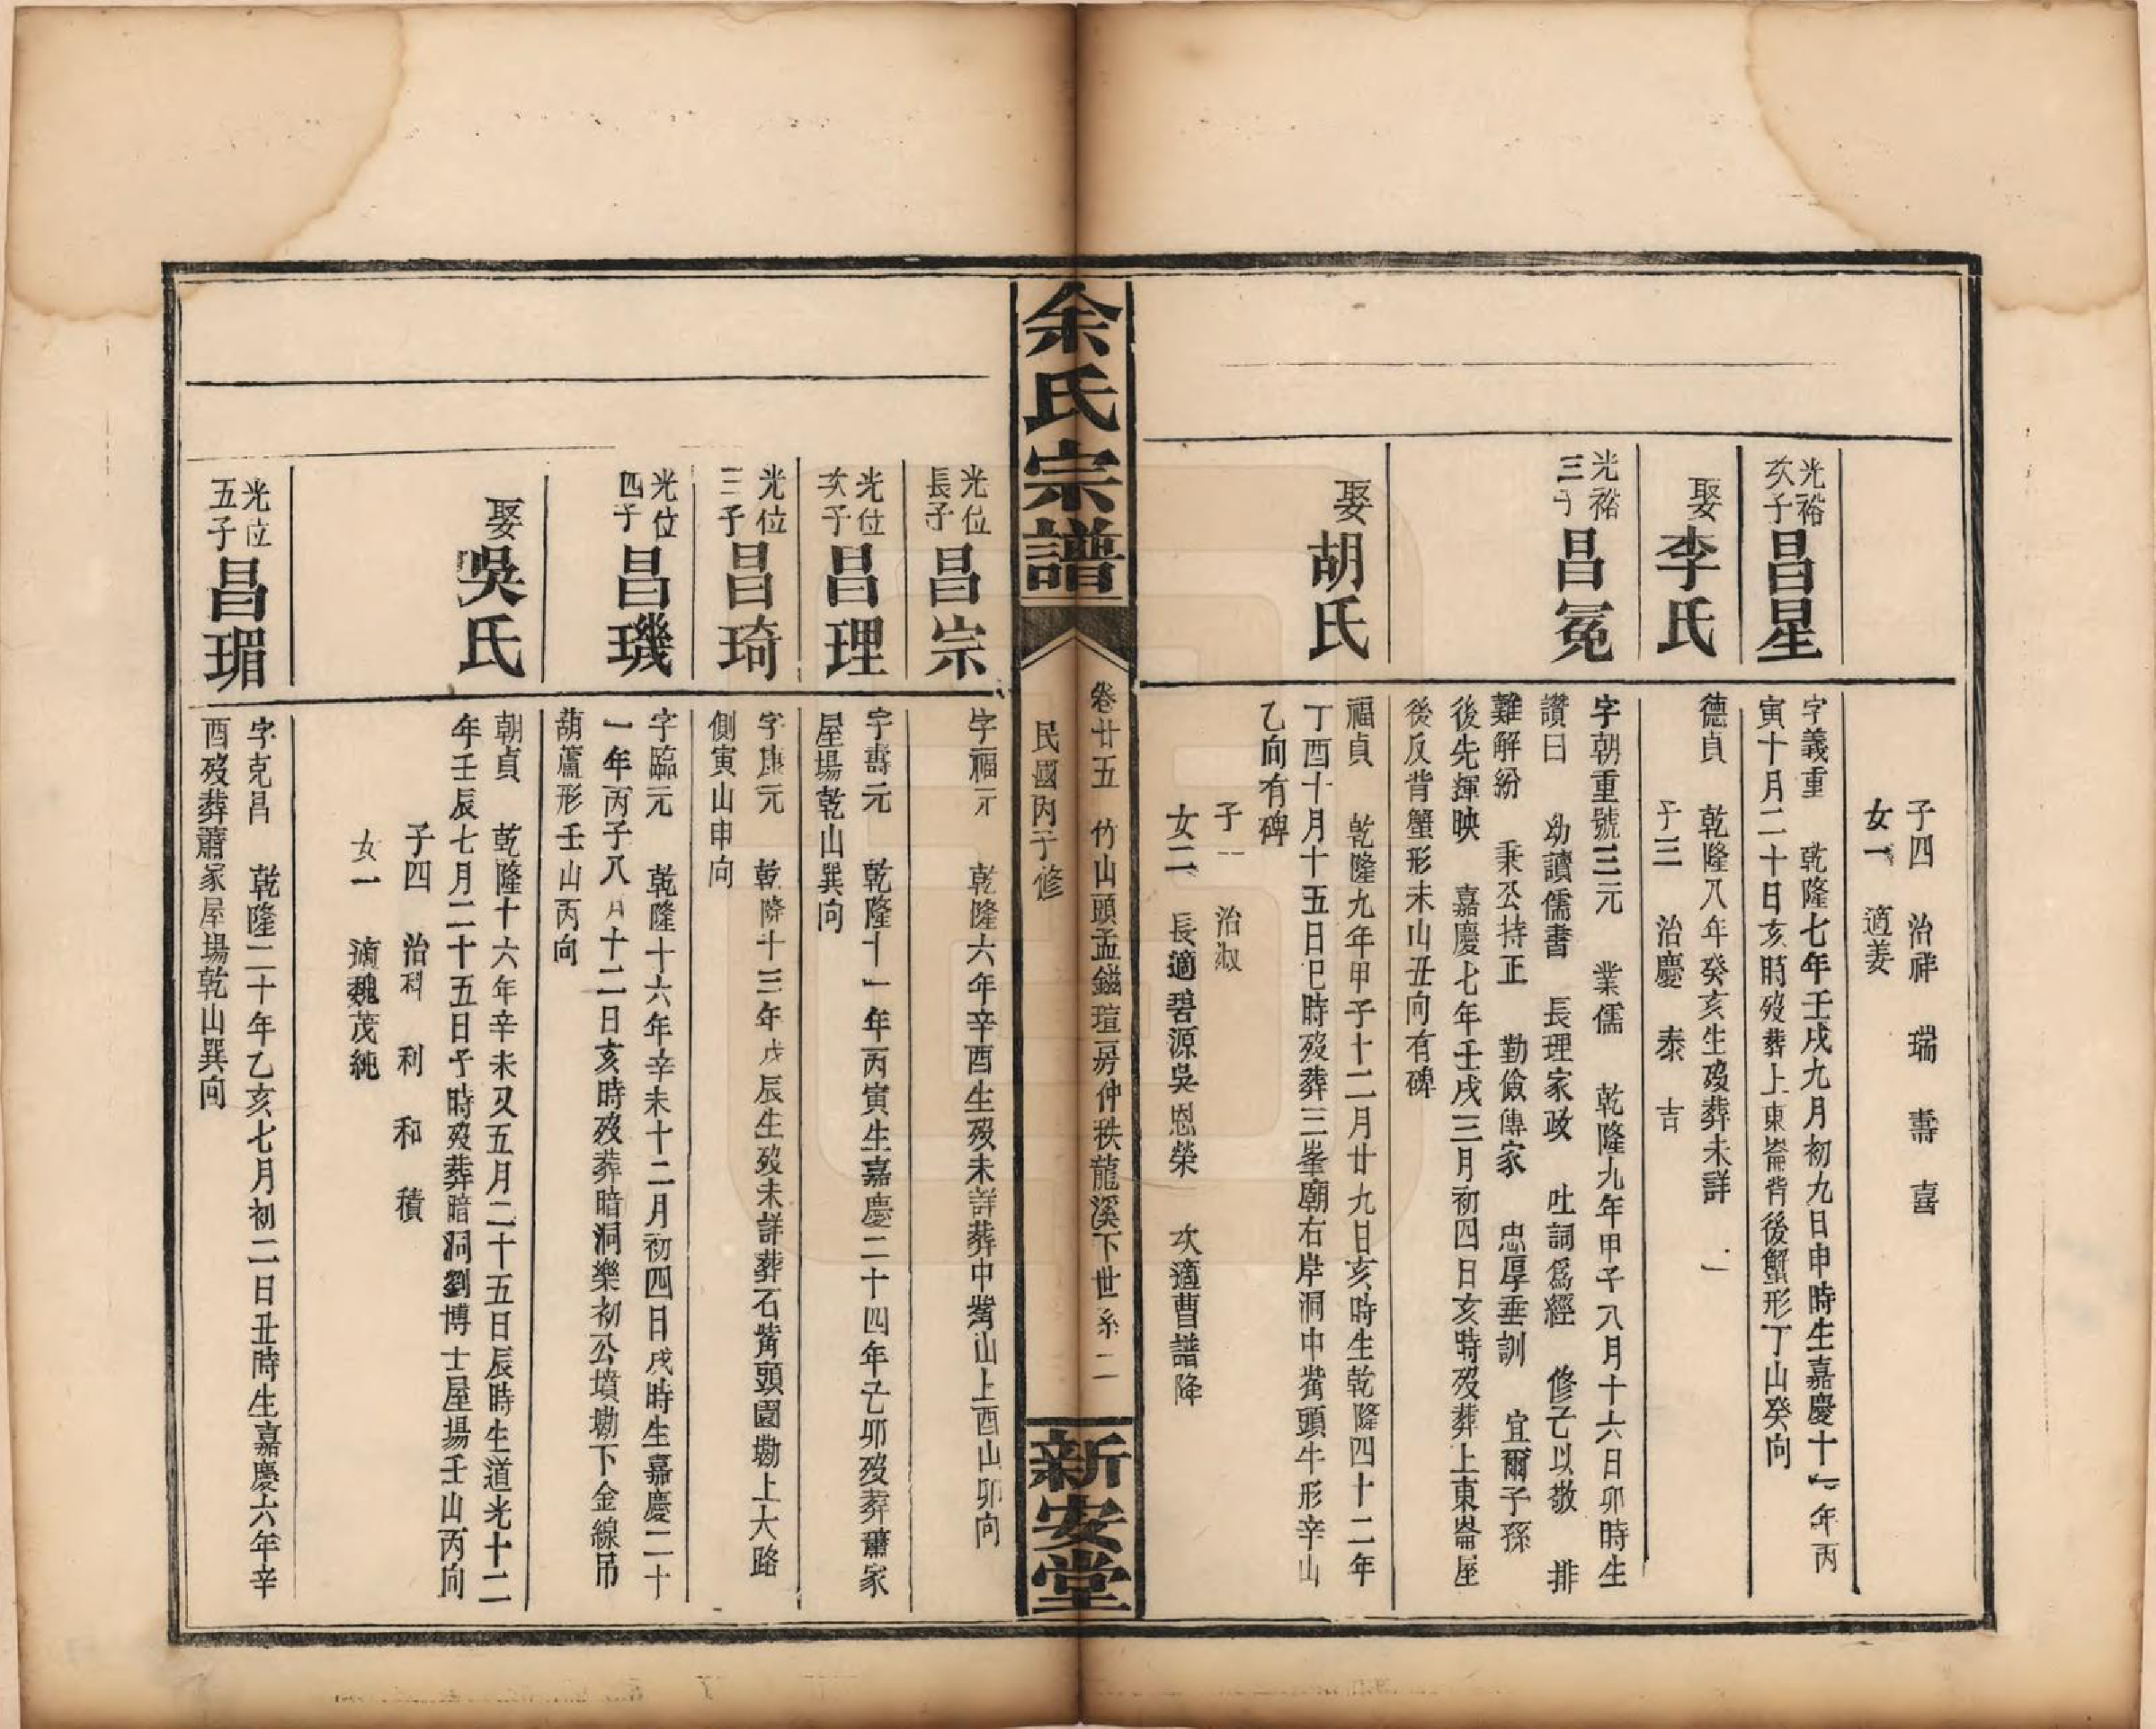 子四 治祥 瑞 壽 喜
女一 適姜
光裕次子 昌星 字義重 乾隆七年壬戌九月初九日申時生嘉慶十一年丙
寅十月二十日亥時歿葬上東崙背後蟹形丁山癸向
娶李氏 德貞 乾隆八年癸亥生歿葬未詳
子三 治慶 泰 吉
光裕三子 昌冕 字朝重號三元 業儒 乾隆九年甲子八月十六日卯時生
讚曰 幼讀儒書 長理家政 吐詞爲經 修己以敬 排
難解紛 秉公持正 勤儉傳家 忠厚垂訓 宜爾子孫
後先輝映 嘉慶七年壬戌三月初四日亥時歿葬上東崙屋
後反背蟹形未山丑向有碑
娶胡氏 福貞 乾隆九年甲子十二月廿九日亥時生乾隆四十二年
丁酉十月十五日巳時歿葬三峯廟右岸洞中嘴頭牛形辛山
乙向有碑
子一 治淑
女二 長適碧源吳恩榮 次適曹譜降
余氏宗譜 卷廿五 竹山頭孟鎰瑄房仲秩龍溪下世系 二 新安堂
民國丙子修
光位長子 昌宗 字福元 乾隆六年辛酉生歿未詳葬中嘴山上酉山卯向
光位次子 昌理 字壽元 乾隆十一年丙寅生嘉慶二十四年己卯歿葬蕭家
屋場乾山巽向
光位三子 昌琦 字康元 乾隆十三年戊辰生歿未詳葬石嘴頭園墈上大路
側寅山申向
光位四子 昌璣 字臨元 乾隆十六年辛未十二月初四日戌時生嘉慶二十
一年丙子八月十二日亥時歿葬暗洞樂初公墳墈下金線吊
葫蘆形壬山丙向
娶吳氏 朝貞 乾隆十六年辛未又五月二十五日辰時生道光十二
年壬辰七月二十五日子時歿葬暗洞劉博士屋場壬山丙向
子四 治科 利 和 積
女一 適魏茂純
光位五子 昌瑂 字克昌 乾隆二十年乙亥七月初二日丑時生嘉慶六年辛
酉歿葬蕭家屋場乾山巽向